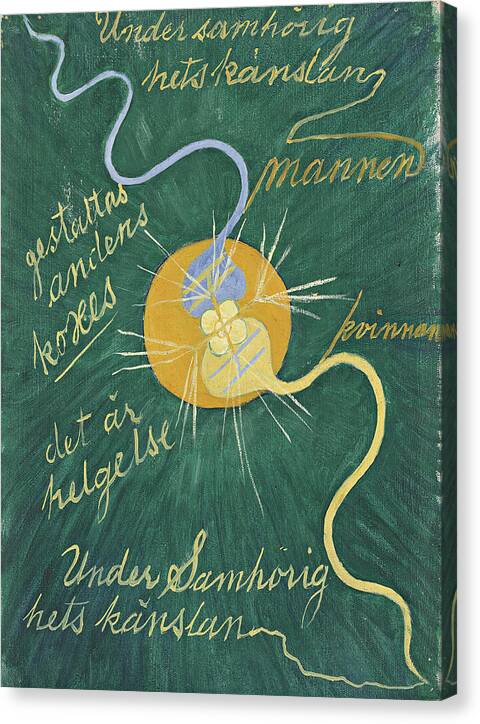 Under samhörig
hets känslan
mannen
gestaltas
andens
koxes
kvinnan
det är
helgelse
Under Samhörig
hets känslan